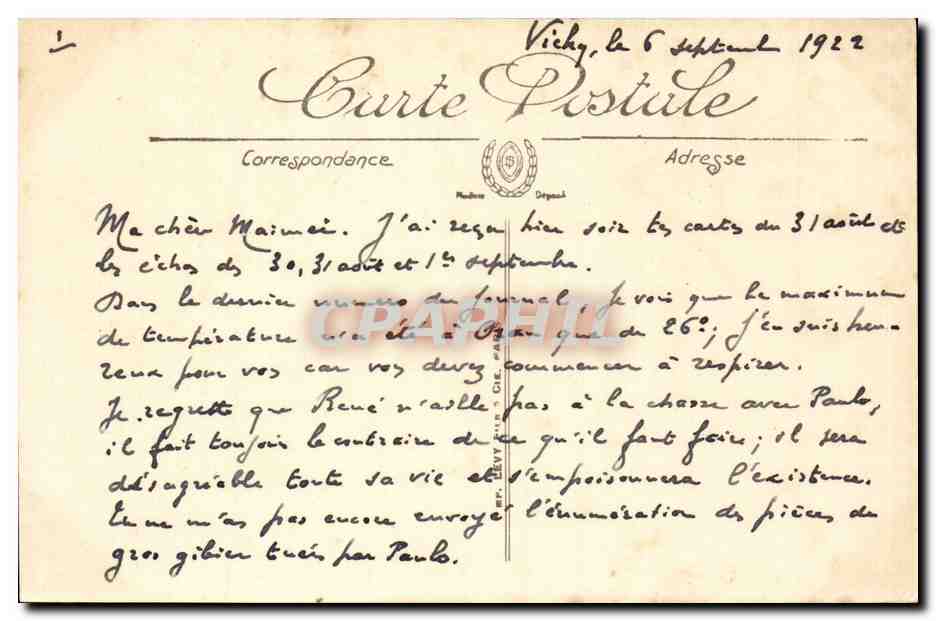 1
Vichy, le 6 septembre 1922
Carte Postale
Correspondance
Adresse
Modèle Déposé
Ma chère Maimée. J'ai reçu hier soir tes cartes du 31 août et
les échos des 30, 31 août et 1er septembre.
Dans le dernier numéro du journal, je vois que le maximum
de température n'a été à que de 26°; j'en suis heu-
reux pour vos car vos devez commencer à respirer.
Je regrette que René n'aille pas à la chasse avec Paulo,
il fait toujours le contraire de ce qu'il faut faire; il sera
désagréable toute sa vie et s'empoisonnera l'existence.
Tu ne m'as pas encore envoyé l'énumération des pièces de
gros gibier tués par Paulo.
LÉVY FILS & CIE. PARIS
CPAPHIL